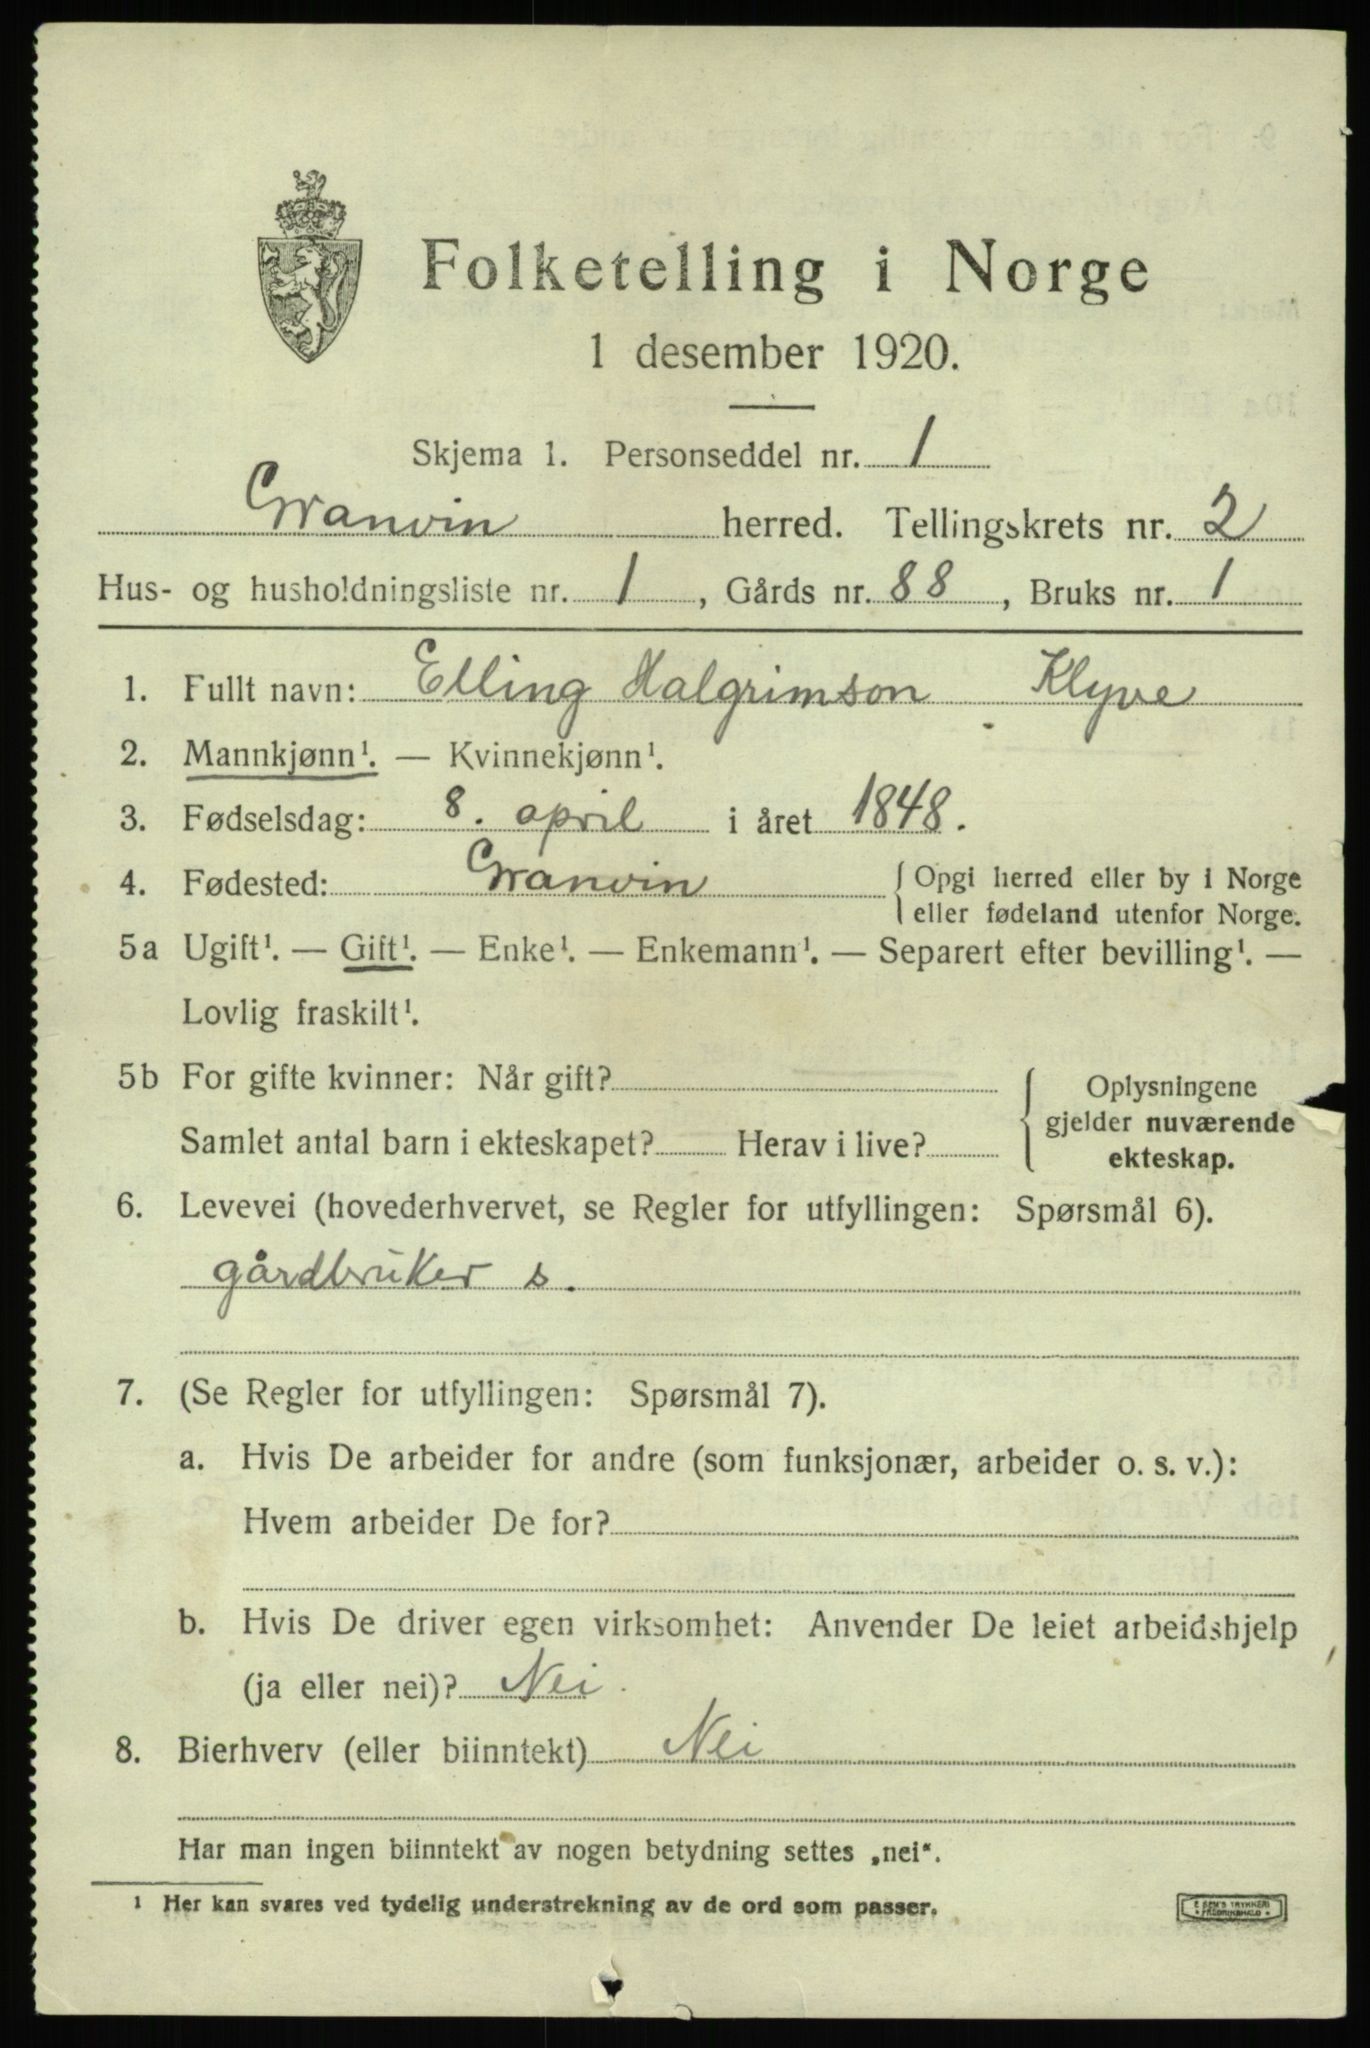 Folketelling i Norge
1 desember 1920.
Skjema 1. Personseddel nr. 1
Granvin herred. Tellingskrets nr. 2
Hus- og husholdningsliste nr. 1, Gårds nr. 88, Bruks nr. 1
1. Fullt navn: Elling Halgrimson Klyve
2. Mannkjønn¹. — Kvinnekjønn¹.
3. Fødselsdag: 8. april i året 1848.
4. Fødested: Granvin { Opgi herred eller by i Norge
eller fødeland utenfor Norge.
5a Ugift¹. — Gift¹. — Enke¹. — Enkemann¹. — Separert efter bevilling¹. —
Lovlig fraskilt¹.
5b For gifte kvinner: Når gift?
Samlet antal barn i ekteskapet? Herav i live?
Oplysningene
gjelder nuværende
ekteskap.
6. Levevei (hovederhvervet, se Regler for utfyllingen: Spørsmål 6).
gårdbruker s.
7. (Se Regler for utfyllingen: Spørsmål 7).
a. Hvis De arbeider for andre (som funksjonær, arbeider o. s. v.):
Hvem arbeider De for?
b. Hvis De driver egen virksomhet: Anvender De leiet arbeidshjelp
(ja eller nei)? Nei.
8. Bierhverv (eller biinntekt) Nei
Har man ingen biinntekt av nogen betydning settes „nei“.
¹ Her kan svares ved tydelig understrekning av de ord som passer.